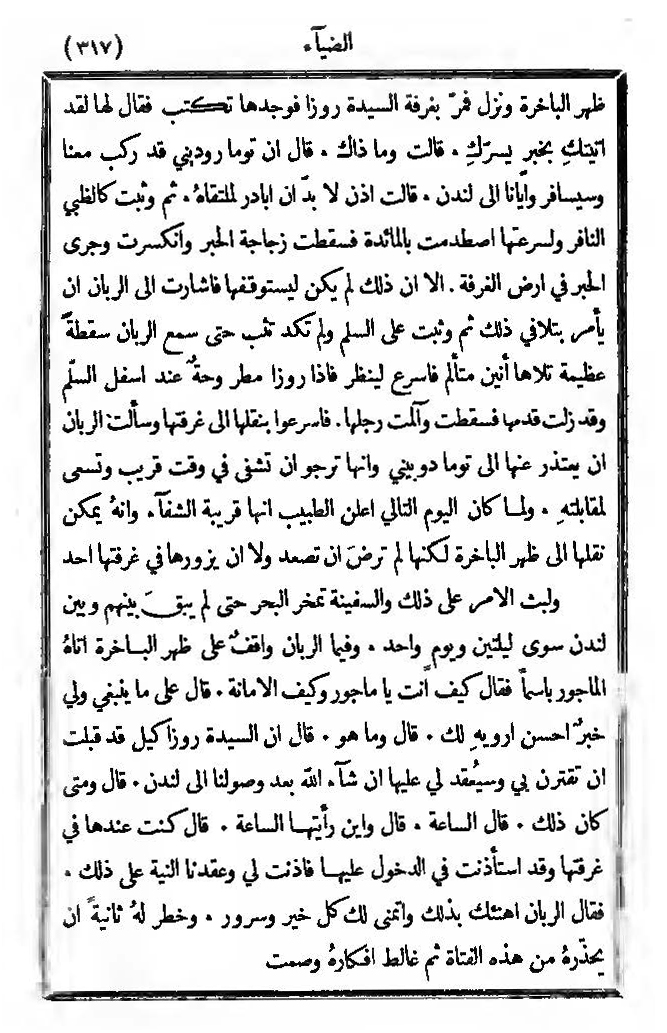 الضيآء
(٣١٧)
ظهر الباخرة ونزل فمرّ بغرفة السيدة روزا فوجدها تكتب فقال لها لقد
اتيتكِ بخبر يسرّكِ ٠ قالت وما ذاك ٠ قال ان توما روديني قد ركب معنا
وسيسافر وايّانا الى لندن ٠ قالت اذن لا بدّ ان ابادر لملتقاهُ ٠ ثم وثبت كالظبي
النافر ولسرعتها اصطدمت بالمائدة فسقطت زجاجة الحبر وانكسرت وجرى
الحبر في ارض الغرفة ٠ الا ان ذلك لم يكن ليستوقفها فاشارت الى الربان ان
يأمر بتلافي ذلك ثم وثبت على السلم ولم تكد تثب حتى سمع الربان سقطةً
عظيمة تلاها أنين متألم فاسرع لينظر فاذا روزا مطروحةٌ عند اسفل السلّم
وقد زلت قدمها فسقطت وآلمت رجلها ٠ فاسرعوا بنقلها الى غرفتها وسألت الربان
ان يعتذر عنها الى توما دوبيني وانها ترجو ان تشفى في وقت قريب وتسعى
لمقابلتهِ ٠ ولما كان اليوم التالي اعلن الطبيب انها قريبة الشفآء وانهُ يمكن
نقلها الى ظهر الباخرة لكنها لم ترضَ ان تصعد ولا ان يزورها في غرفتها احد
ولبث الامر على ذلك والسفينة تمخر البحر حتى لم يبقَ بينهم وبين
لندن سوى ليلتين ويوم واحد ٠ وفيما الربان واقفٌ على ظهر الباخرة اتاهُ
الماجور باسماً فقال كيف انت يا ماجور وكيف الامانة ٠ قال على ما ينبغي ولي
خبرٌ احسن ارويهِ لك ٠ قال وما هو ٠ قال ان السيدة روزا كيل قد قبلت
ان تقترن بي وسيُعقد لي عليها ان شآء الله بعد وصولنا الى لندن ٠ قال ومتى
كان ذلك ٠ قال الساعة ٠ قال واين رأيتها الساعة ٠ قال كنت عندها في
غرفتها وقد استأذنت في الدخول عليها فاذنت لي وعقدنا النية على ذلك ٠
فقال الربان اهنئك بذلك واتمنى لك كل خير وسرور ٠ وخطر لهُ ثانيةً ان
يحذّرهُ من هذه الفتاة ثم غالط افكارهُ وصمت